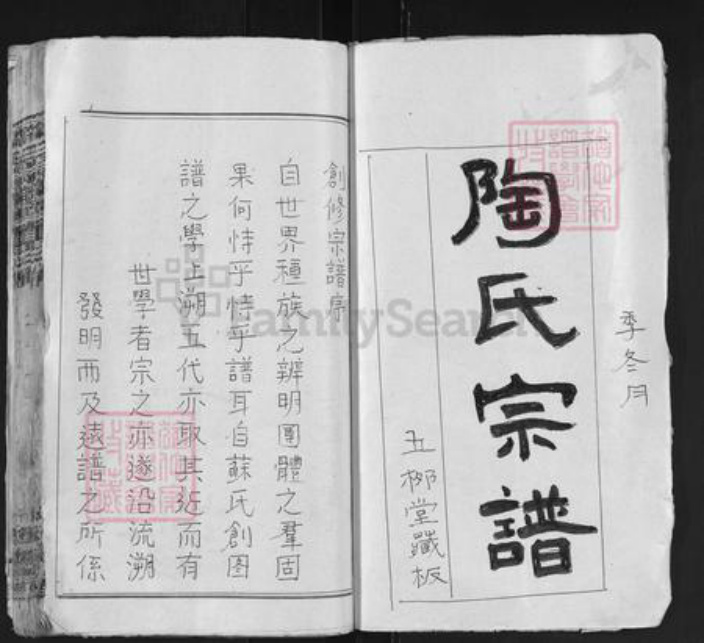 季冬月
陶氏宗譜
五柳堂藏板
創修宗譜序
自世界種族之辨明團體之羣固
果何恃乎恃乎譜耳自蘇氏創圖
譜之學上溯五代亦取其近而有
世學者宗之亦遂沿流溯
發明而及遠譜之所係
FamilySearch